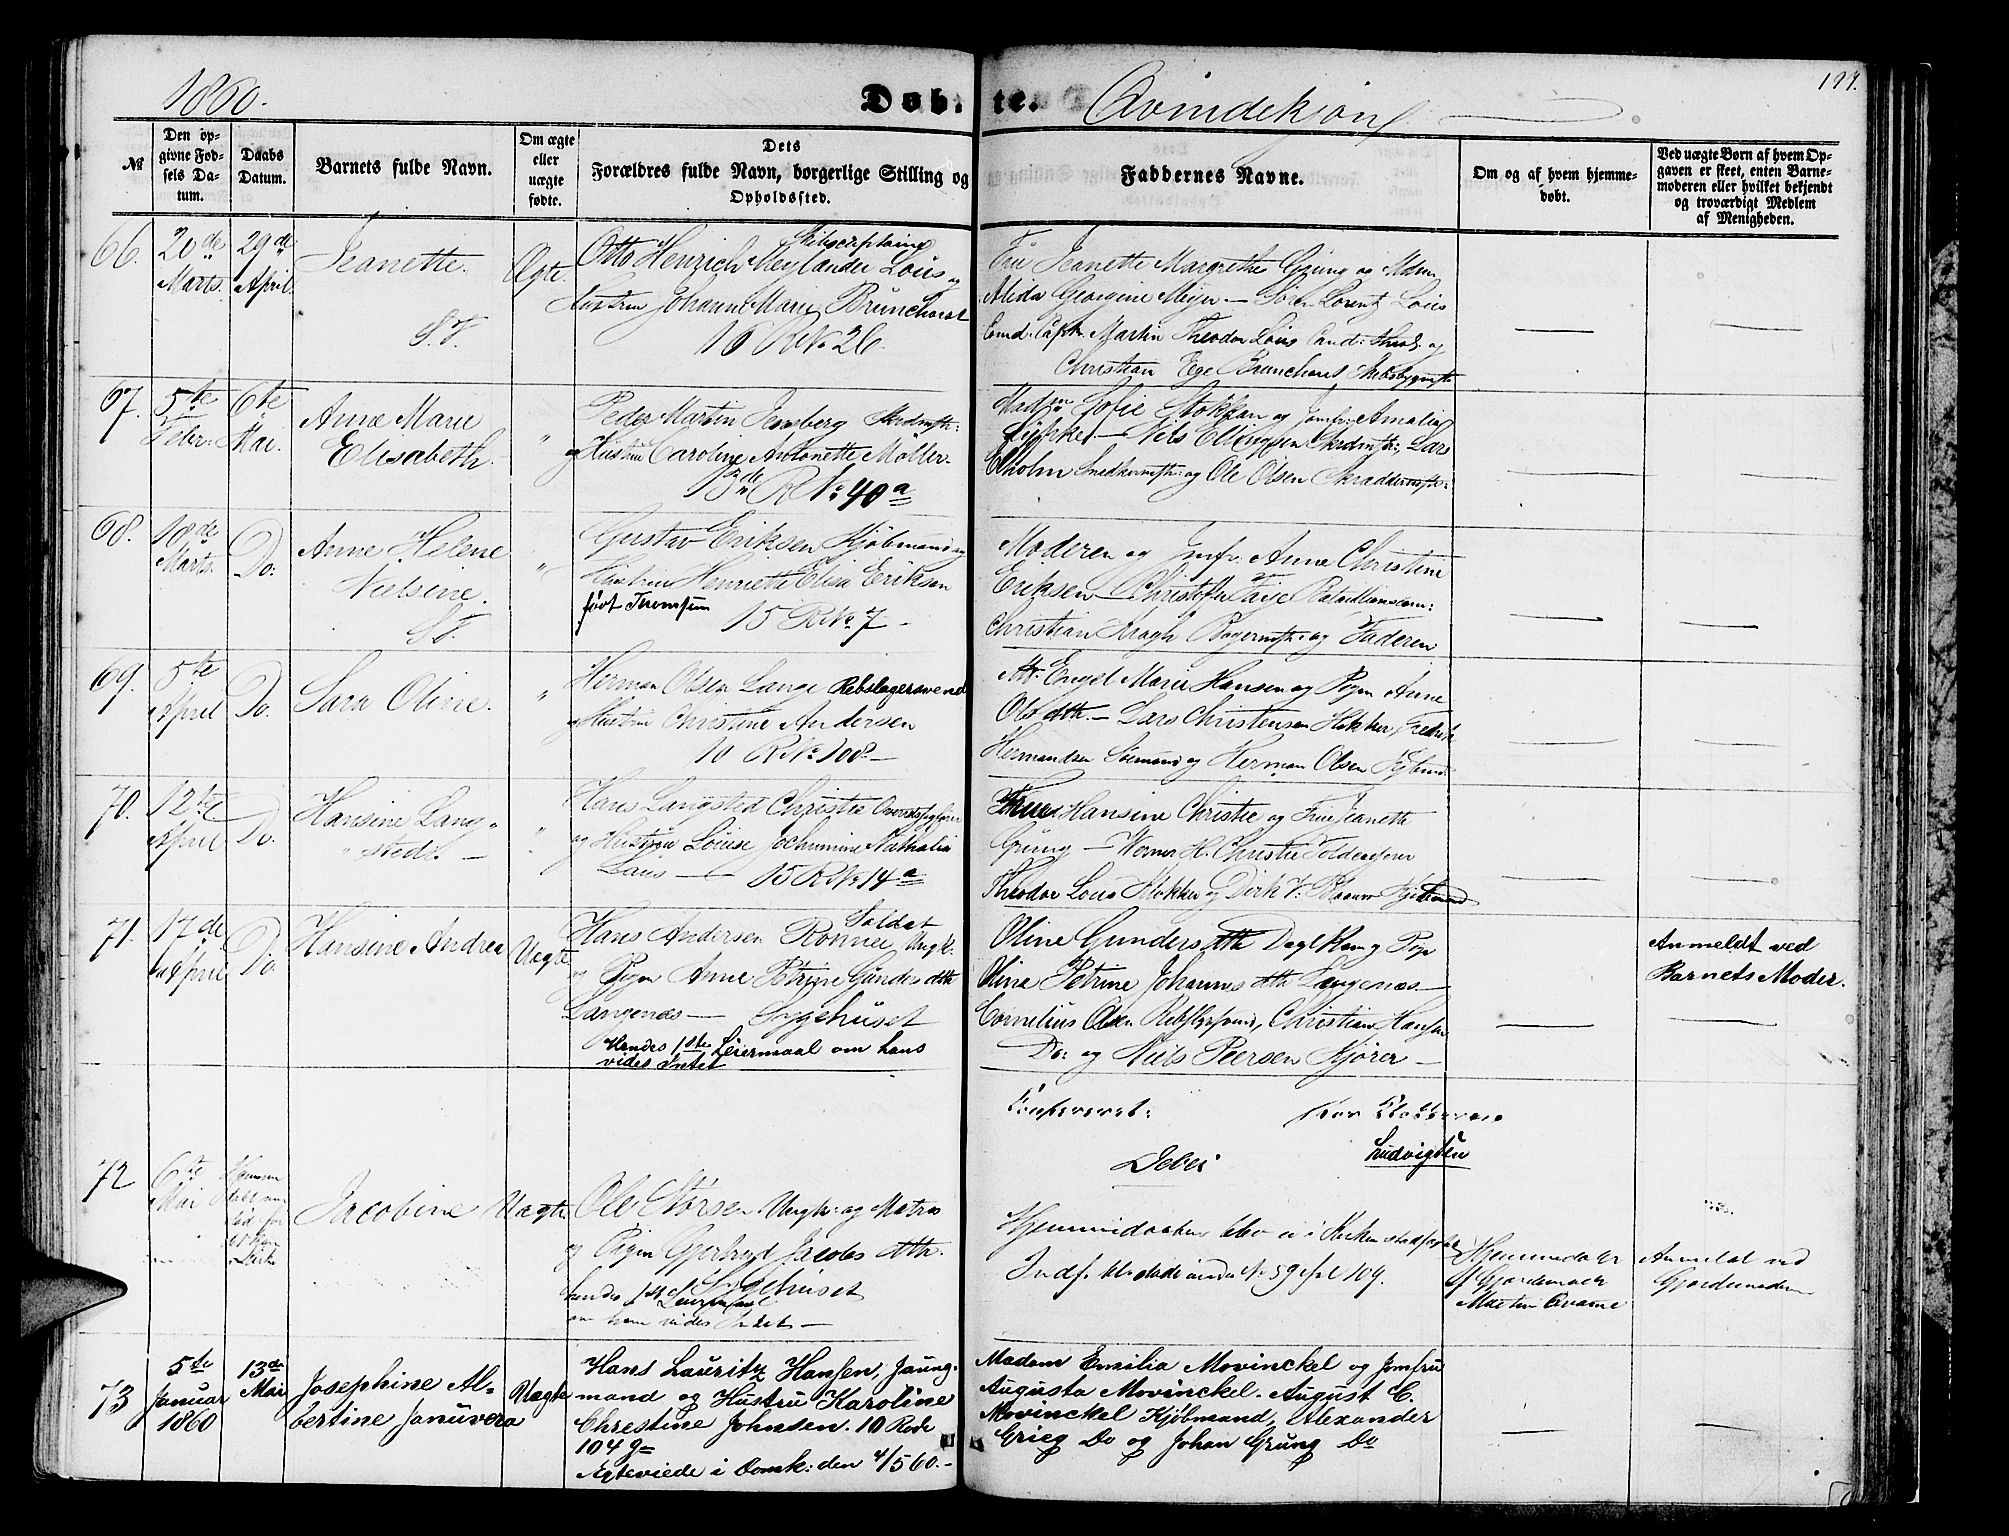 1860.
Døbte.
Qvindekjøn
199.
№
Den op-
givne Fød-
sels Da-
tum.
Daabs
Datum.
Barnets fulde Navn.
Om ægte
eller
uægte
fødte.
Dets
Forældres fulde Navn, borgerlige Stilling og
Opholdssted.
Faddernes Navne.
Om og af hvem hjemme-
døbt.
Ved uægte Børn af hvem Op-
gaven er skeet, enten Barne-
moderen eller hvilket bekjendt
og troværdigt Medlem
af Menigheden.
66.
20de
Marts.
29de
April
Jeanette.
S.T.
Ægte.
Skibscaptaine
Otto Henrich Meylander Lous og
Hustru Johanne Marie Brunchorst
16 R No 26
Fru Jeanette Margrethe Grung og Mdm
Alida Georgine Meyer — Søren Lorentz Lous
Martin Theodor Lous Cand: theol: og
Christian Ege Brunchorst Skibsbygmstr
67.
5te
Febr:
6te
Mai.
Anne Marie
Elisabeth.
"
Peder Martin Jensberg Skrdmstr:
og Hustru Caroline Antonette Møller.
13de R No: 40a
Madm Sofie Stokkan og Jomfr: Amalia
Lypke — Nils Ellingsen Skrdmstr: Lars
Ekholm Snedkermstr: og Ole Olsen Skræddermstr:
68.
18de
Marts.
Do:
Anne Helene
Nielsine.
S.T.
"
Gustav Eriksen Kjøbmand og
Hustru Henriette Elisa Eriksen
født Tromsum
15 R No 7 -
Moderen og Jmfr: Anne Christine
Eriksen — Christofer Faye
Christian Kragh Bagermstr: og Faderen
69.
5te
April
Do.
Sara Oline.
"
Herman Olsen Lange Rebslagersvend
og Hustru Christine Andersen
10 R No 108 —
M. Engel Marie Hansen og Pigen Anne
Ols dtr. — Lars Christensen Høkker, Fredrik
Hermandsen Sømand og Herman Olsen
70.
12te
April
Do.
Hansine Lang-
sted. —
"
Hans Langsted Christie Overretssagfører
og Hustru Louise Jochumine Nathalia
Lous — 15 R No 14a
Frue Hansine Christie og Frue Jeanette
Grung — Werner H. Christie
Theodor Lous og Dirk Kjøbmand
71.
17de
April
Do.
Hansine Andrea
Uægte
Soldat
Hans Andersen Rønnei Ungk:
og Pigen Anne Petrine Gunders dtr
Langenæs — Sygehuset
Hendes 1ste Leiermaal om hans
vides Intet
Oline Gunders dtr og Pige
Oline Petrine Johannes dtr Langenæs —
Cornelius Olsen Rebslgrsvend, Christian Hansen
Do: og Niels Peersen Kjører —
Anmeldt ved
Barnets Moder.
Confereret:
Debes
Ludvigsen
72
6te
Mai
Jacobine
Uægte
Ole Størsen Ungk: og Matros
og Pigen Gjertrud Jacobs dtr.
Sygehuset
hendes 1ste Leiermaal
om ham vides Intet —
Hjemmedaaben blev ei i Kirken stadfæstet
Indf. bl. døde under No 59 fol 109.
Hjemmedøbt
af Gjordemoder
Marthe Qvame
Anmeldt ved
Gjordemoderen
73
5te
Januar
1860
13de
Mai
Josephine Al-
bertine Januvera
Uægte
Hans Lauritz Hansen, Jaung-
mand og Hustru Karoline
Christine Johnsen. 10 Rode
104 g=
Ægteviede i Domk: den 4/5 60. -
Madam Emilia Movinckel og Jomfru
Augusta Movinckel. August C.
Movinckel Kjøbmand, Alexander
Grieg Do og Johan Grung Do